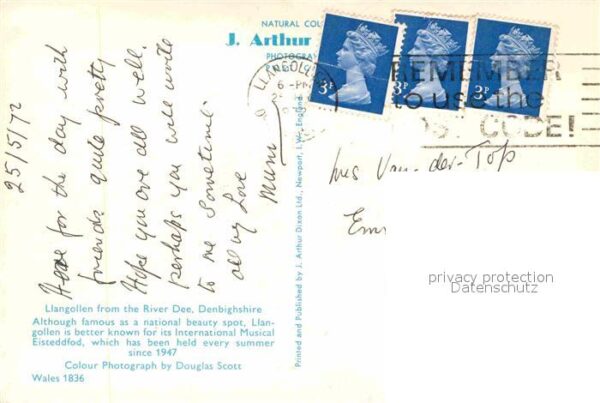 NATURAL COL
J. Arthur
PHOTOGRAPH
25/5/72
Here for the day with
friends quite pretty
Hope you are all well.
perhaps you will write
to me sometime
all my love
Mum
LLANGOLLEN
6-PM
3P
3P
3P
REMEMBER
to use the
POST CODE!
Mrs Van-der-Top
privacy protection
Datenschutz
Printed and Published by J. Arthur Dixon Ltd., Newport, I.W., England.
Llangollen from the River Dee, Denbighshire
Although famous as a national beauty spot, Llan-
gollen is better known for its International Musical
Eisteddfod, which has been held every summer
since 1947
Colour Photograph by Douglas Scott
Wales 1836